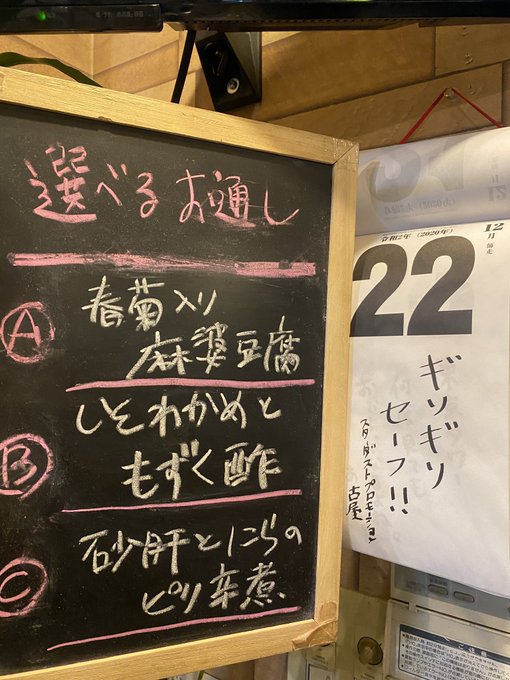 選べるお通し
A
春菊入り
麻婆豆腐
B
しそわかめと
もずく酢
C
砂肝とにらの
ピリ辛煮
令和2年(2020年)
12月
師走
22
ギリギリ
セーフ!!
スターダストプロモーション
古屋